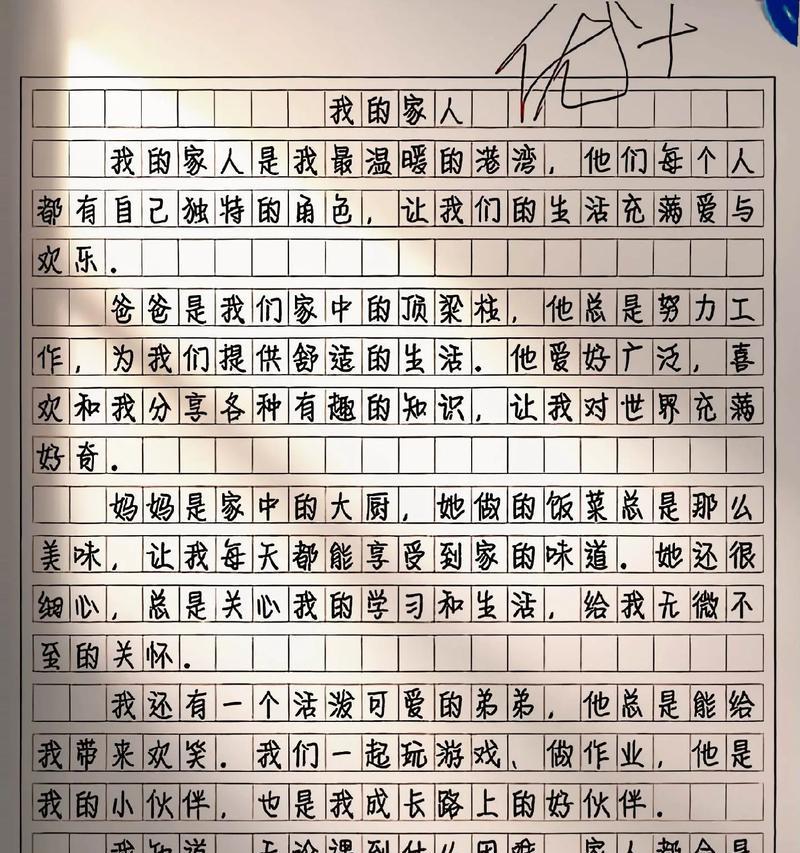 优+
我的家人
我的家人是我最温暖的港湾，他们每个人
都有自己独特的角色，让我们的生活充满爱与
欢乐。
爸爸是我们家中的顶梁柱，他总是努力工
作，为我们提供舒适的生活。他爱好广泛，喜
欢和我分享各种有趣的知识，让我对世界充满
好奇。
妈妈是家中的大厨，她做的饭菜总是那么
美味，让我每天都能享受到家的味道。她还很
细心，总是关心我的学习和生活，给我无微不
至的关怀。
我还有一个活泼可爱的弟弟，他总是能给
我带来欢笑。我们一起玩游戏、做作业，他是
我的小伙伴，也是我成长路上的好伙伴。
我知道，无论遇到什么困难，家人都会是